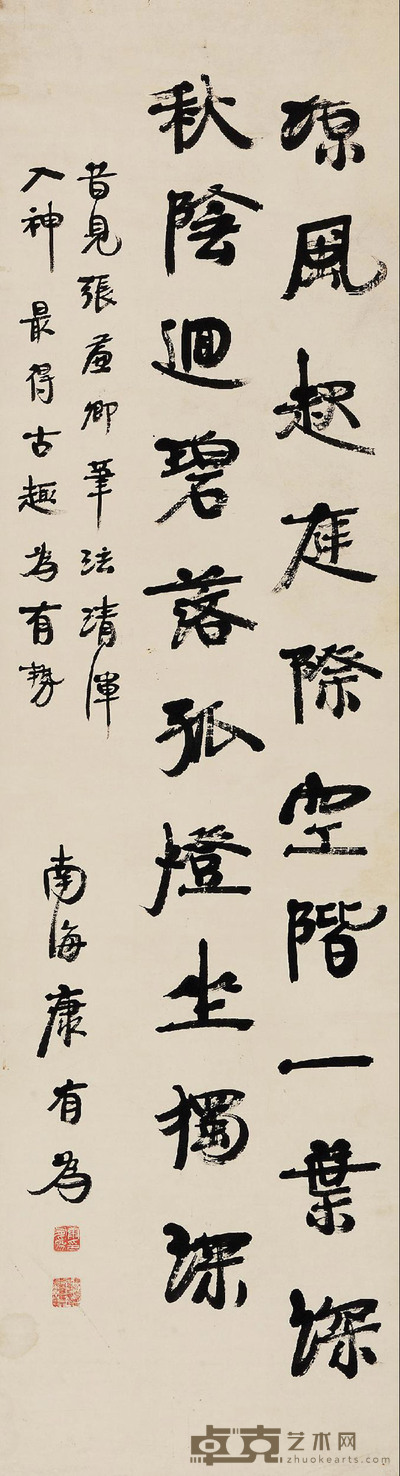 凉風起庭際空階一葉深
秋陰迴碧落孤燈坐獨深
昔見張廉卿筆法清渾
入神 最得古趣為有勢
南海康有為
卓克艺术网
zhuokearts.com